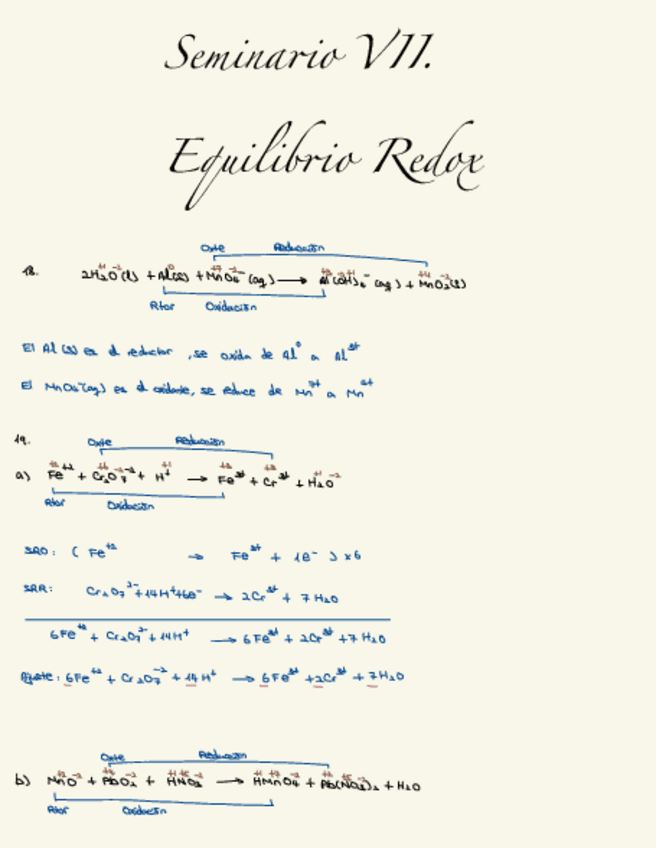 Seminario VII.
Equilibrio Redox
Oxte Reducción
18. 2H₂O(l) + Al(s) + MnO₄⁻(aq) ⟶ Al(OH)₄⁻(aq) + MnO₂(s)
Rtor Oxidación
El Al(s) es el reductor, se oxida de Al⁰ a Al³⁺
El MnO₄⁻(aq) es el oxidante, se reduce de Mn⁷⁺ a Mn⁴⁺
19. Oxte Reducción
a) Fe⁺² + Cr₂O₇⁻² + H⁺ ⟶ Fe³⁺ + Cr³⁺ + H₂O
Rtor Oxidación
SRO: ( Fe⁺² → Fe³⁺ + 1e⁻ ) x6
SRR: Cr₂O₇²⁻ + 14H⁺ + 6e⁻ → 2Cr³⁺ + 7H₂O
6Fe⁺² + Cr₂O₇²⁻ + 14H⁺ ⟶ 6Fe³⁺ + 2Cr³⁺ + 7H₂O
Ajuste: 6Fe⁺² + Cr₂O₇⁻² + 14H⁺ ⟶ 6Fe³⁺ + 2Cr³⁺ + 7H₂O
Oxte Reducción
b) MnO + PbO₂ + HNO₃ ⟶ HMnO₄ + Pb(NO₃)₂ + H₂O
Rtor Oxidación